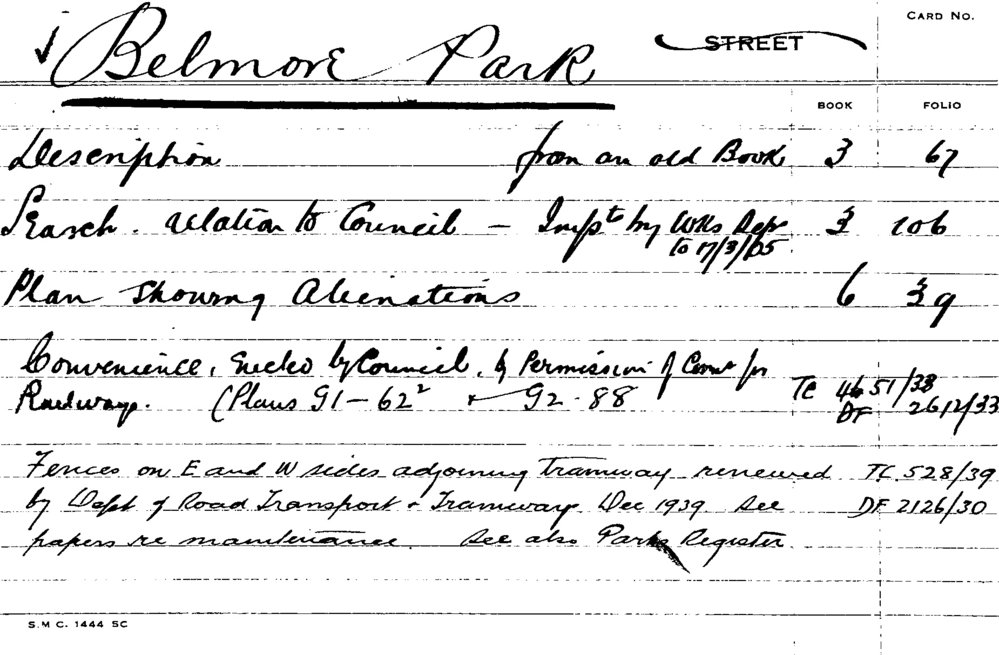 CARD NO.
Belmore Park STREET
BOOK FOLIO
Description from an old Book 3 67
Search. relation to Council – Impts by Wks Dept 3 106
to 17/3/05.
Plan showing Alienations 6 39
Convenience, Erected by Council, by Permission of Comr for
Railways. (Plans G1-62² & G2-88 TC 4651/38
DF 2612/33
Fences on E and W sides adjoining tramway renewed TC 528/39
by Dept of Road Transport & Tramways Dec 1939 See DF 2126/30
papers re maintenance. See also Parks Register
S.M.C. 1444 SC